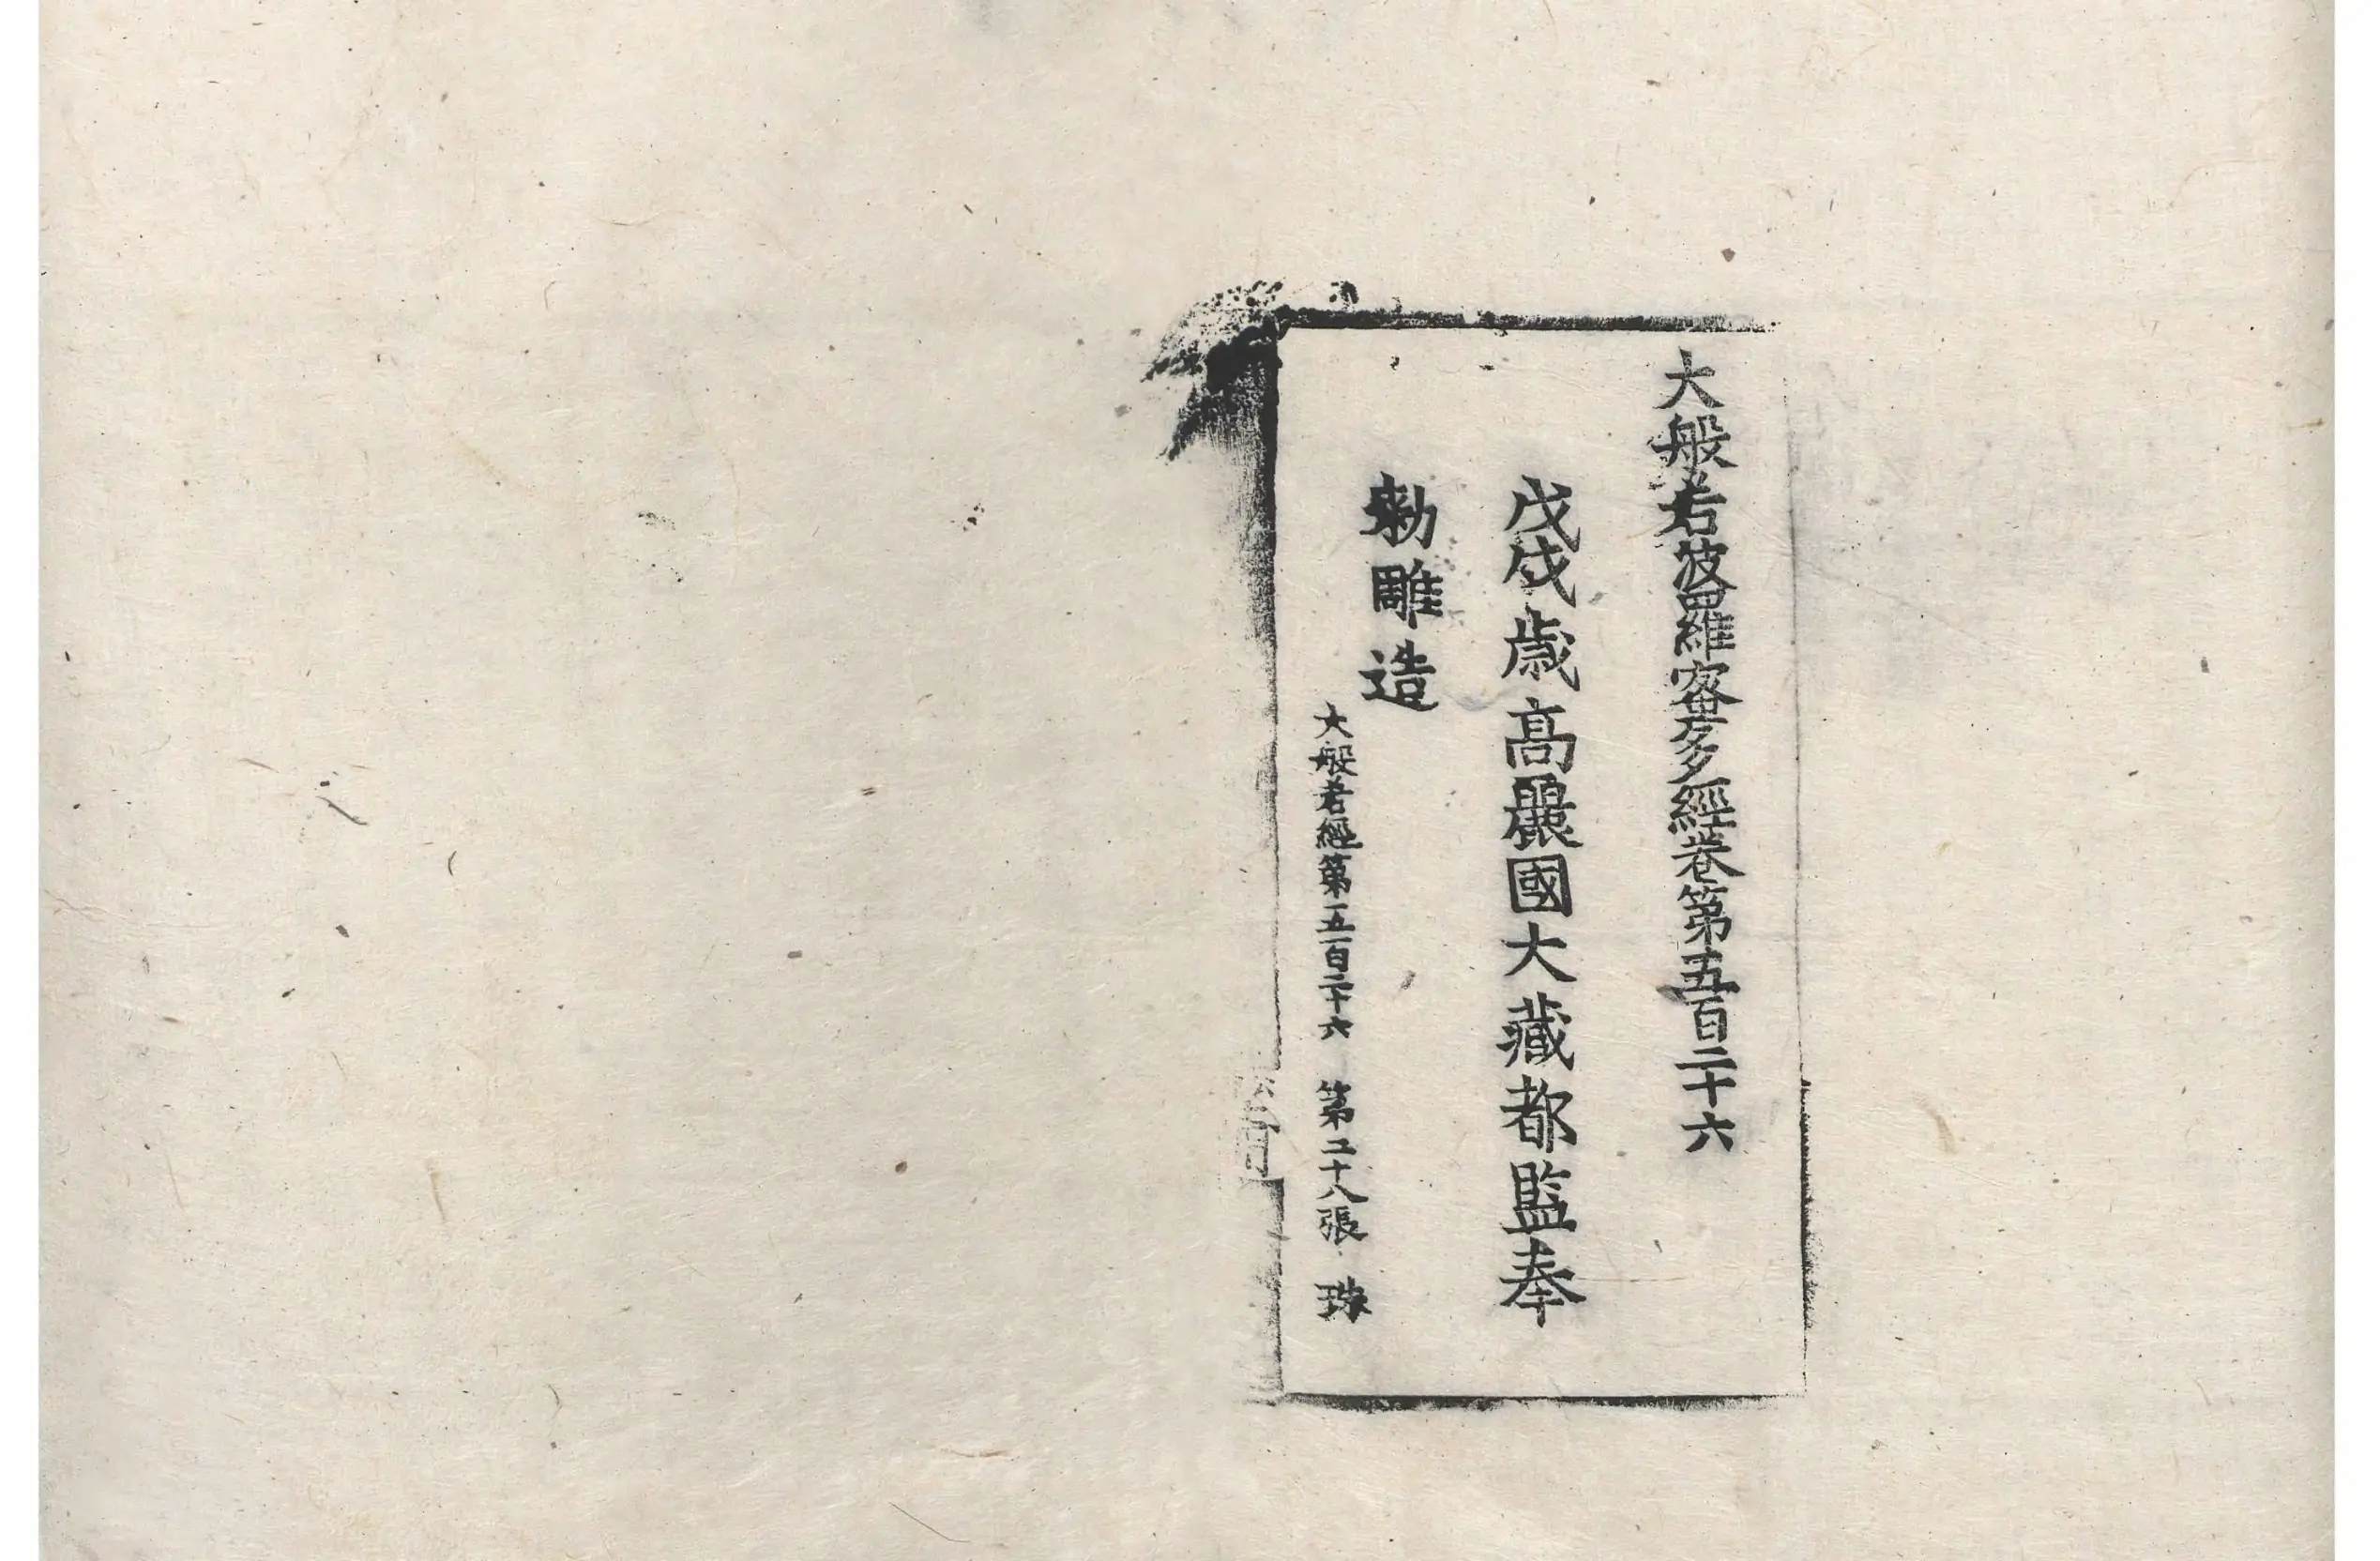 大般若波羅蜜多經卷第五百二十六
戊戌歲高麗國大藏都監奉
勅雕造
大般若經第五百二十六 第二十八張 珠